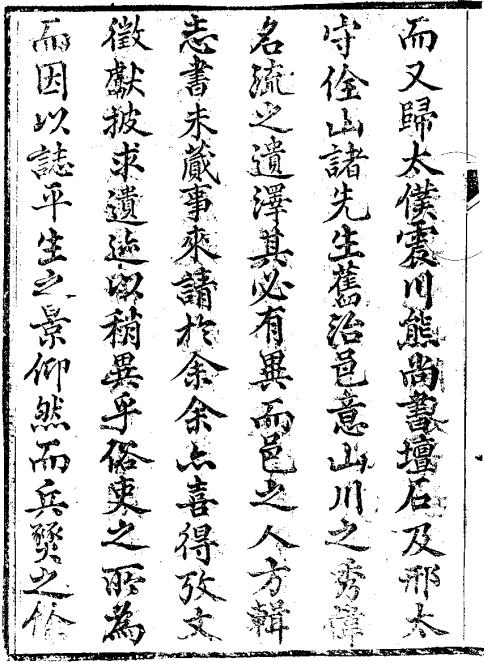 而又歸太僕震川熊尚書壇石及邢太
守佺山諸先生舊治邑意山川之秀偉
名流之遺澤其必有異而邑之人方輯
志書未蕆事來請於余余亦喜得攷文
徵獻披求遺迹以稍異乎俗吏之所為
而因以誌平生之景仰然而兵燹之餘